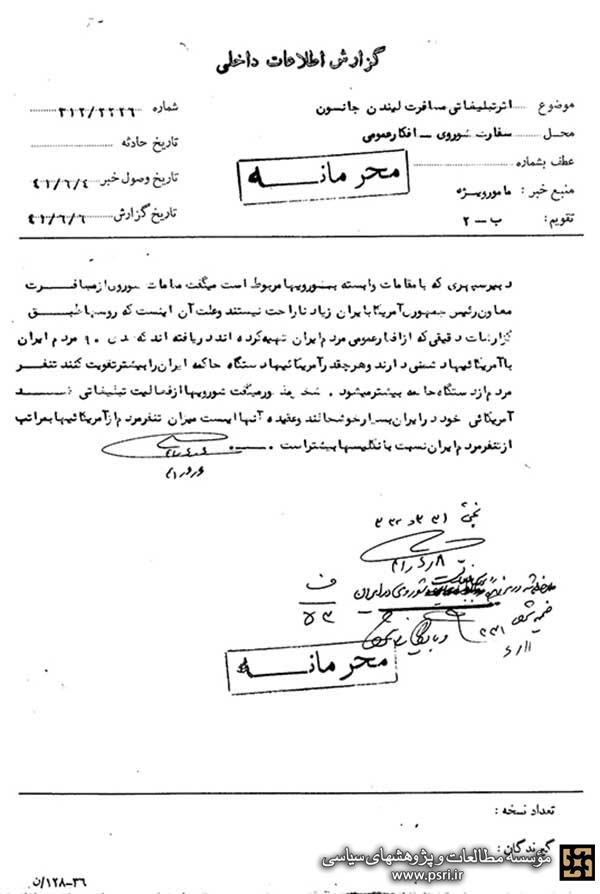 گزارش اطلاعات داخلی
موضوع اثر تبلیغاتی مسافرت لیندن جانسون
شماره ۳۱۲/۲۲۲۶
محل سفارت شوروی – افکار عمومی
تاریخ حادثه
عطف بشماره
محرمانه
تاریخ وصول خبر ۴۱/۶/۴
منبع خبر : مامور ویژه
تاریخ گزارش ۴۱/۶/۶
تقویم : ب – ۲
دبیر سپهری که با مقامات وابسته بشورویها مربوط است میگفت مقامات شوروی از مسافرت
معاون رئیس جمهوری آمریکا بایران زیاد ناراحت نیستند وعلت آن اینست که روسها طبق
گزارشات دقیقی که از افکار عمومی مردم ایران تهیه کرده اند دریافته اند که ۹۰ مردم ایران
با آمریکائیها دشمنی دارند وهر چقدر آمریکائیها دستگاه حاکمه ایران را بیشتر تقویت کنند تنفر
مردم از دستگاه حاکمه بیشتر میشود . شخص مذکور میگفت شورویها از فعالیت تبلیغاتی ضد
آمریکائی خود در ایران بسیار خوشحالند وعقیده آنها اینست میزان تنفر مردم از آمریکائیها بمراتب
از تنفر مردم ایران نسبت بانگلیسها بیشتر است .
بخش ۳۳۱ و ۳۳۲
۴۱/۶/۸
شوروی در ایران
ف
۵۳
۳۳۱
۶/۱۱
محرمانه
تعداد نسخه :
گیرندگان :
موسسه مطالعات و پژوهشهای سیاسی
www.psri.ir
۱۲۸-۳۶/ن